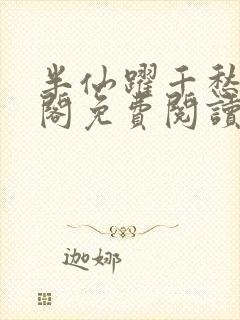 半仙躍千愁
閣免費閱讀
迦娜